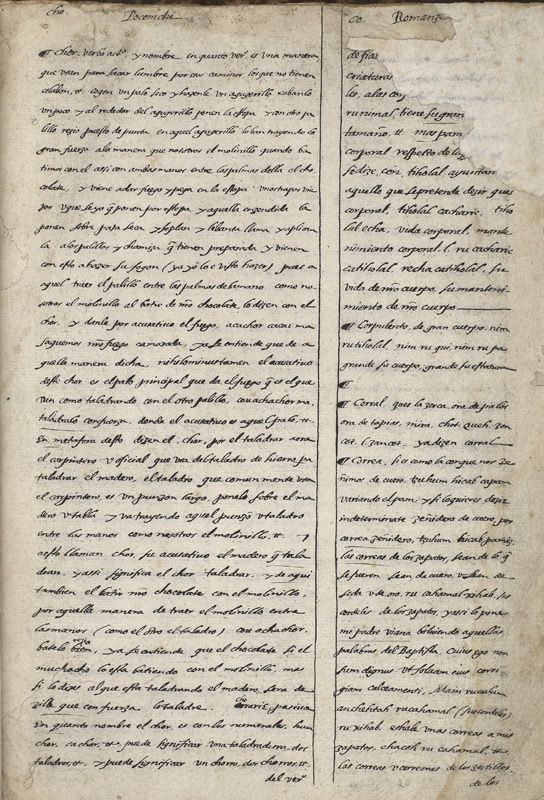 Cho. Pocomchi.
¶ Chor, verbo actº. y nombre, en quanto verº. es vna manera
que vsan para sacar lumbre por estos caminos los que no tienen
eslabon, tt. cogen vn palo seco y hazenle vn agugerillo cabanlo
vn poco y al rededor del agugerillo ponen la estopa y con otro pa
lillo rejio puesto de punta en aquel agugerillo lo van trayendo con
gran fuersa ala manera que nosotros el molinillo quando ba
timos con el assi con ambas manos entre las palmas della el cho
colate, y viene a dar fuego y pega en la estopa
por que se yo q̃ ponen por estopa, y aquella encendida la
ponen sobre paja seca y soplan y lebanta llama, y aplican
la a los palillos y chamiza q̃ tienen preparada y vienen
con esto a hazer su fogon (ya yo lo e visto hazer) pues a
aquel traer el palillo entre las palmas de la mano como no-
sotros el molinillo al batir de nr̃o chocolate, lo dizen con el
chor, y danle por acusatiuo el fuego, cachor caca ma
saquemos nr̃o fuego camarada, ya se entiende que de a
quella manera dicha, nihilominus tamen el acusatiuo
deste chor es el palo principal que da el fuego q̃ es el que
van como taladrando con el otro palillo, cou achachor ma,
taladralo con fuerza, donde el acusatiuo es aquel palo, tt.
En metafora desto dizen el, chor, por el taladrar aora
el carpintero v oficial que vsa del taladro de hierro pa
taladrar el madero, el taladro que comunmente vsa
el carpintero, es vn punzon largo, ponelo sobre el ma
dero v tabla y va trayendo aquel punzõ v taladro
entre las manos como nosotros el molinillo, tt. y
a esto llaman chor, su acusatiuo el madero q̃ tala
dran, y assi significa el chor taladrar, y de aqui
tambien el batir nr̃o chocolate con el molinillo,
por aquella manera de traer el molinillo entre
las manos (como el otro el taladro) cou achachor,
batelo bien, ya se entiende que el chocolate si el
muchacho lo esta batiendo con el molinillo, mas
si lo dizes al que esta taladrando el madero, sera de
zille que con fuerza lo taladre. choraric, pasiua
En quanto nombre el chor, es con los numerales, hun
chor, cachor, tt. puede significar vna taladradura, dos
taladros, tt. y puede significar vn chorro, dos chorros, tt.
del verº
Co. Romanze
de fias
criaturas
les, a las con
ru rimal, tiene su gran
tamaño, tt. mas para
corporal respecto de los
se dize, con, tiholal ajuntan
aquello que se pretende dezir ques
corporal, tiholal cacharic, tiho
lal echa, vida corporal, mante
nimiento corporal, l. ru cacharic
catiholal, recha catiholal, su
vida de nr̃o cuerpo, su manteni
miento de nr̃o cuerpo
¶ Corpulento, de gran cuerpo, nim
ru tiholal, nim ru qui, nim ru pa
grande su cuerpo, grande su estatura
¶
¶ Corral ques la zerca, ora de palos
ora de tapias, nima chot, quehi, zon
cot, l. zancot, ya dizen corral
¶ Correa, si es como la con que nos ze
ñimos de cuero, tzuhum bicab capam
variando el pam, y si lo quieres dezir
indeterminate zeñidero de cuero, por
correa zeñidero, tzuhum bicab, pamaj.
las correas de los zapatos, sean de lo q̃
se fueren, sean de cuero, v de lana, de
seda v de, no, ru cahamal xihab, los
cordeles de los zapatos, y assi lo pone
mi padre viana bolviendo aquellas
palabras del Baptista, cuius ego non
sum dignus vt soluam eius corri
giam calceamenti, Main ruculum
anchehitah rucahamal (sus cordeles)
ru xihab echale vnas correas a mis
zapatos, chacoh ru cahamal, tt.
las correas v correones de los zestillos,
de los